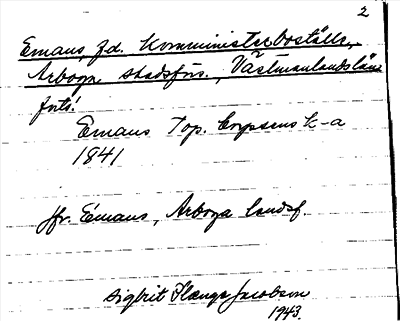 2
Emaus, f.d. Komministerboställe,
Arboga stadsförs., Västmanlands län
fnts!
Emaus Top. Corpsens k-a
1841
jfr. Emaus, Arboga landsf.
Sigbrit Plænge Jacobson
1943.